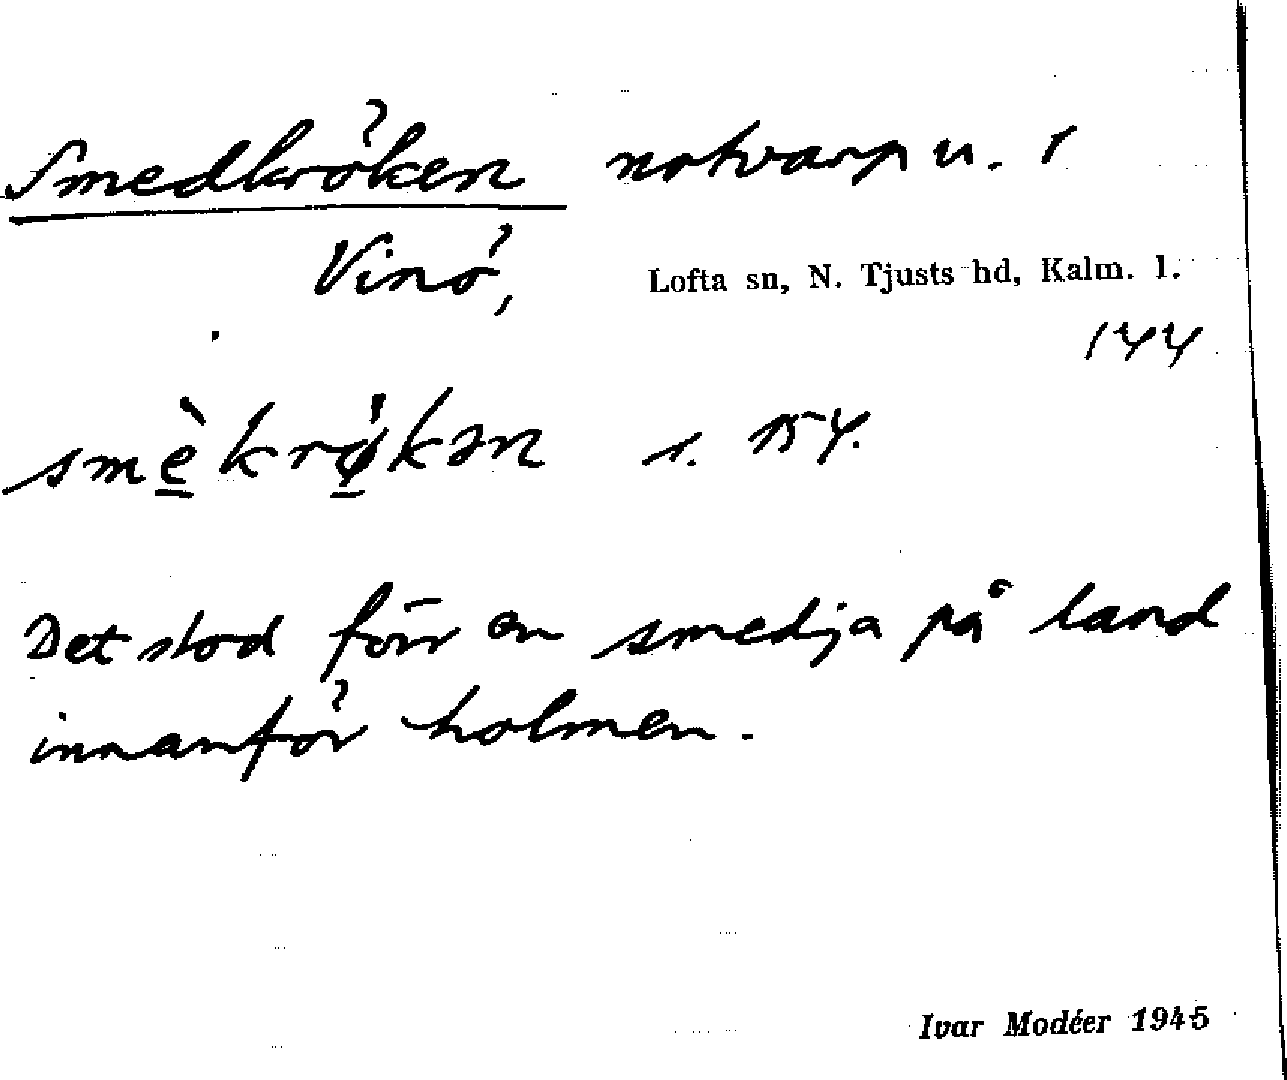 Smedkröken notvarp u. 1
Vinö, Lofta sn, N. Tjusts hd, Kalm. l.
144
smèkrø̀kən s. 154.
Det stod förr en smedja på land
innanför holmen.
Ivar Modéer 1945